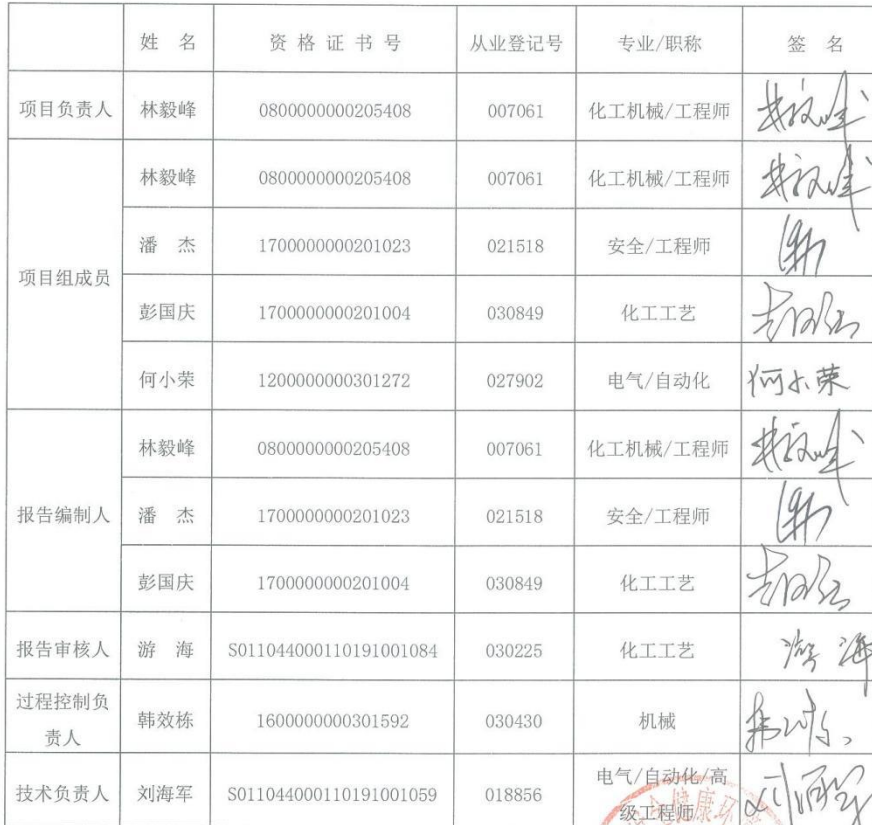 姓 名 资 格 证 书 号 从业登记号 专业/职称 签 名
项目负责人 林毅峰 0800000000205408 007061 化工机械/工程师 林毅峰
项目组成员 林毅峰 0800000000205408 007061 化工机械/工程师 林毅峰
潘 杰 1700000000201023 021518 安全/工程师
彭国庆 1700000000201004 030849 化工工艺
何小荣 1200000000301272 027902 电气/自动化 何小荣
报告编制人 林毅峰 0800000000205408 007061 化工机械/工程师 林毅峰
潘 杰 1700000000201023 021518 安全/工程师
彭国庆 1700000000201004 030849 化工工艺
报告审核人 游 海 S011044000110191001084 030225 化工工艺 游海
过程控制负
责人 韩效栋 1600000000301592 030430 机械
技术负责人 刘海军 S011044000110191001059 018856 电气/自动化/高
级工程师 刘海军
健康环